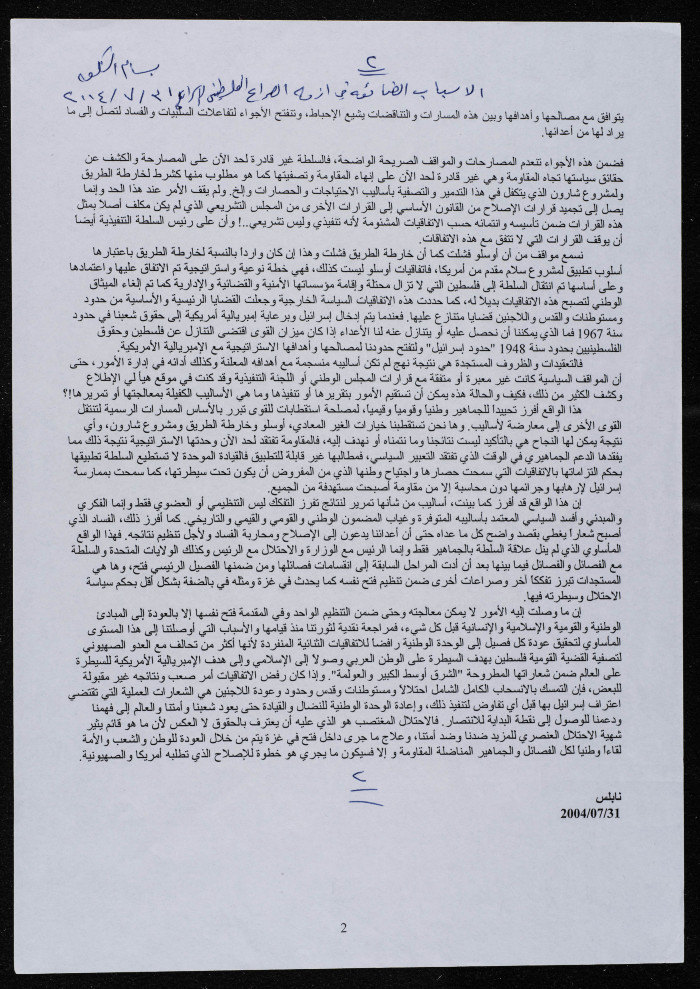 ٢
بسام الشكعه
الاسباب الضائعة في ازمة الصراع الفلسطيني الاسرائيلي ٣١ / ٧ / ٢٠٠٤
يتوافق مع مصالحها وأهدافها وبين هذه المسارات والتناقضات يشيع الإحباط، وتنفتح الأجواء لتفاعلات السلبيات والفساد لتصل إلى ما
يراد لها من أعدائها.
فضمن هذه الأجواء تنعدم المصارحات والمواقف الصريحة الواضحة، فالسلطة غير قادرة لحد الآن على المصارحة والكشف عن
حقائق سياستها تجاه المقاومة وهي غير قادرة لحد الآن على إنهاء المقاومة وتصفيتها كما هو مطلوب منها كشرط لخارطة الطريق
ولمشروع شارون الذي يتكفل في هذا التدمير والتصفية بأساليب الاجتياحات والحصارات وإلخ. ولم يقف الأمر عند هذا الحد وإنما
يصل إلى تجميد قرارات الإصلاح من القانون الأساسي إلى القرارات الأخرى من المجلس التشريعي الذي لم يكن مكلف أصلا بمثل
هذه القرارات ضمن تأسيسه وانتمائه حسب الاتفاقيات المشئومة لأنه تنفيذي وليس تشريعي..! وأن على رئيس السلطة التنفيذية أيضا
أن يوقف القرارات التي لا تتفق مع هذه الاتفاقات.
نسمع مواقف من أن أوسلو فشلت كما أن خارطة الطريق فشلت وهذا إن كان وارداً بالنسبة لخارطة الطريق باعتبارها
أسلوب تطبيق لمشروع سلام مقدم من أمريكا، فاتفاقيات أوسلو ليست كذلك، فهي خطة نوعية واستراتيجية تم الاتفاق عليها واعتمادها
وعلى أساسها تم انتقال السلطة إلى فلسطين التي لا تزال محتلة وإقامة مؤسساتها الأمنية والقضائية والإدارية كما تم إلغاء الميثاق
الوطني لتصبح هذه الاتفاقيات بديلا له، كما حددت هذه الاتفاقيات السياسة الخارجية وجعلت القضايا الرئيسية والأساسية من حدود
ومستوطنات والقدس واللاجنين قضايا متنازع عليها. فعندما يتم إدخال إسرائيل وبرعاية إمبريالية أمريكية إلى حقوق شعبنا في حدود
سنة 1967 فما الذي يمكننا أن نحصل عليه أو يتنازل عنه لنا الأعداء إذا كان ميزان القوى اقتضى التنازل عن فلسطين وحقوق
الفلسطينيين بحدود سنة 1948 "حدود إسرائيل" ولتفتح حدودنا لمصالحها وأهدافها الاستراتيجية مع الإمبريالية الأمريكية.
فالتعقيدات والظروف المستجدة هي نتيجة نهج لم تكن أساليبه منسجمة مع أهدافه المعلنة وكذلك أدائه في إدارة الأمور، حتى
أن المواقف السياسية كانت غير معبرة أو متفقة مع قرارات المجلس الوطني أو اللجنة التنفيذية وقد كنت في موقع هيأ لي الإطلاع
وكشف الكثير من ذلك، فكيف والحالة هذه يمكن أن تستقيم الأمور بتقريرها أو تنفيذها وما هي الأساليب الكفيلة بمعالجتها أو تمريرها!؟
هذا الواقع أفرز تحييدا للجماهير وطنيا وقوميا وقيمياً، لمصلحة استقطابات للقوى تبرر بالأساس المسارات الرسمية لتنتقل
القوى الأخرى إلى معارضة لأساليب. وها نحن تستقطبنا خيارات الغير المعادي، أوسلو وخارطة الطريق ومشروع شارون، وأي
نتيجة يمكن لها النجاح هي بالتأكيد ليست نتائجنا وما نتمناه أو نهدف إليه، فالمقاومة تفتقد لحد الآن وحدتها الاستراتيجية نتيجة ذلك مما
يفقدها الدعم الجماهيري في الوقت الذي تفتقد التعبير السياسي، فمطالبها غير قابلة للتطبيق فالقيادة الموحدة لا تستطيع السلطة تطبيقها
بحكم التزاماتها بالاتفاقيات التي سمحت حصارها واجتياح وطنها الذي من المفروض أن يكون تحت سيطرتها، كما سمحت بممارسة
إسرائيل لإرهابها وجرائمها دون محاسبة إلا من مقاومة أصبحت مستهدفة من الجميع.
إن هذا الواقع قد أفرز كما بينت، أساليب من شأنها تمرير لنتائج تفرز التفكك ليس التنظيمي أو العضوي فقط وإنما الفكري
والمبدئي وأفسد السياسي المعتمد بأساليبه المتوفرة وغياب المضمون الوطني والقومي والقيمي والتاريخي. كما أفرز ذلك، الفساد الذي
أصبح شعاراً يغطي بقصد واضح كل ما عداه حتى أن أعدائنا يدعون إلى الإصلاح ومحاربة الفساد ولأجل تنظيم نتائجه. فهذا الواقع
المأساوي الذي لم ينل علاقة السلطة بالجماهير فقط وإنما الرئيس مع الوزارة والاحتلال مع الرئيس وكذلك الولايات المتحدة والسلطة
مع الفصائل والفصائل فيما بينها بعد أن أدت المراحل السابقة إلى انقسامات فصائلها ومن ضمنها الفصيل الرئيسي فتح، وها هي
المستجدات تبرز تفككا آخر وصراعات أخرى ضمن تنظيم فتح نفسه كما يحدث في غزة ومثله في بالضفة بشكل أقل بحكم سياسة
الاحتلال وسيطرته فيها.
إن ما وصلت إليه الأمور لا يمكن معالجته وحتى ضمن التنظيم الواحد وفي المقدمة فتح نفسها إلا بالعودة إلى المبادئ
الوطنية والقومية والإسلامية والإنسانية قبل كل شيء، فمراجعة نقدية لثورتنا منذ قيامها والأسباب التي أوصلتنا إلى هذا المستوى
المأساوي لتحقيق عودة كل فصيل إلى الوحدة الوطنية رافضا للاتفاقيات الثنائية المنفردة لأنها أكثر من تحالف مع العدو الصهيوني
لتصفية القضية القومية فلسطين بهدف السيطرة على الوطن العربي وصولا إلى الإسلامي وإلى هدف الإمبريالية الأمريكية للسيطرة
على العالم ضمن شعاراتها المطروحة "الشرق أوسط الكبير والعولمة". وإذا كان رفض الاتفاقيات أمر صعب ونتائجه غير مقبولة
للبعض، فإن التمسك بالانسحاب الكامل الشامل احتلالا ومستوطنات وقدس وحدود وعودة اللاجئين هي الشعارات العملية التي تقتضي
اعتراف إسرائيل بها قبل أي تفاوض لتنفيذ ذلك، وإعادة الوحدة الوطنية للنضال والقيادة حتى يعود شعبنا وأمتنا والعالم إلى فهمنا
ودعمنا للوصول إلى نقطة البداية للانتصار. فالاحتلال المغتصب هو الذي عليه أن يعترف بالحقوق لا العكس لأن ما هو قائم يثير
شهية الاحتلال العنصري للمزيد ضدنا وضد أمتنا، وعلاج ما جرى داخل فتح في غزة يتم من خلال العودة للوطن والشعب والأمة
لقاءاً وطنيا لكل الفصائل والجماهير المناضلة المقاومة و إلا فسيكون ما يجري هو خطوة للإصلاح الذي تطلبه أمريكا والصهيونية.
٢
نابلس
2004/07/31
2